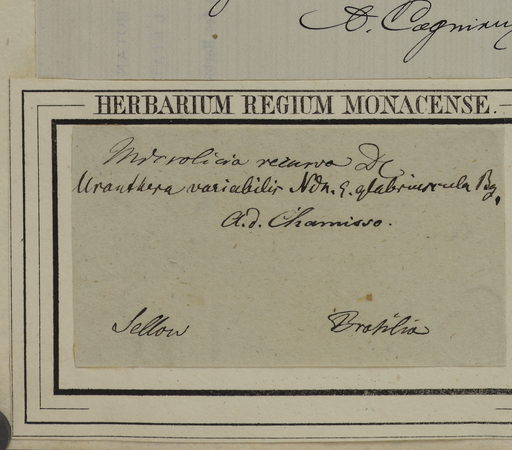 A. Cogniaux
HERBARIUM REGIUM MONACENSE.
Microlicia recurva DC
Uranthera variabilis Ndn. ε. glabriuscula Bg.
A. d. Chamisso.
Sellow Brasilia